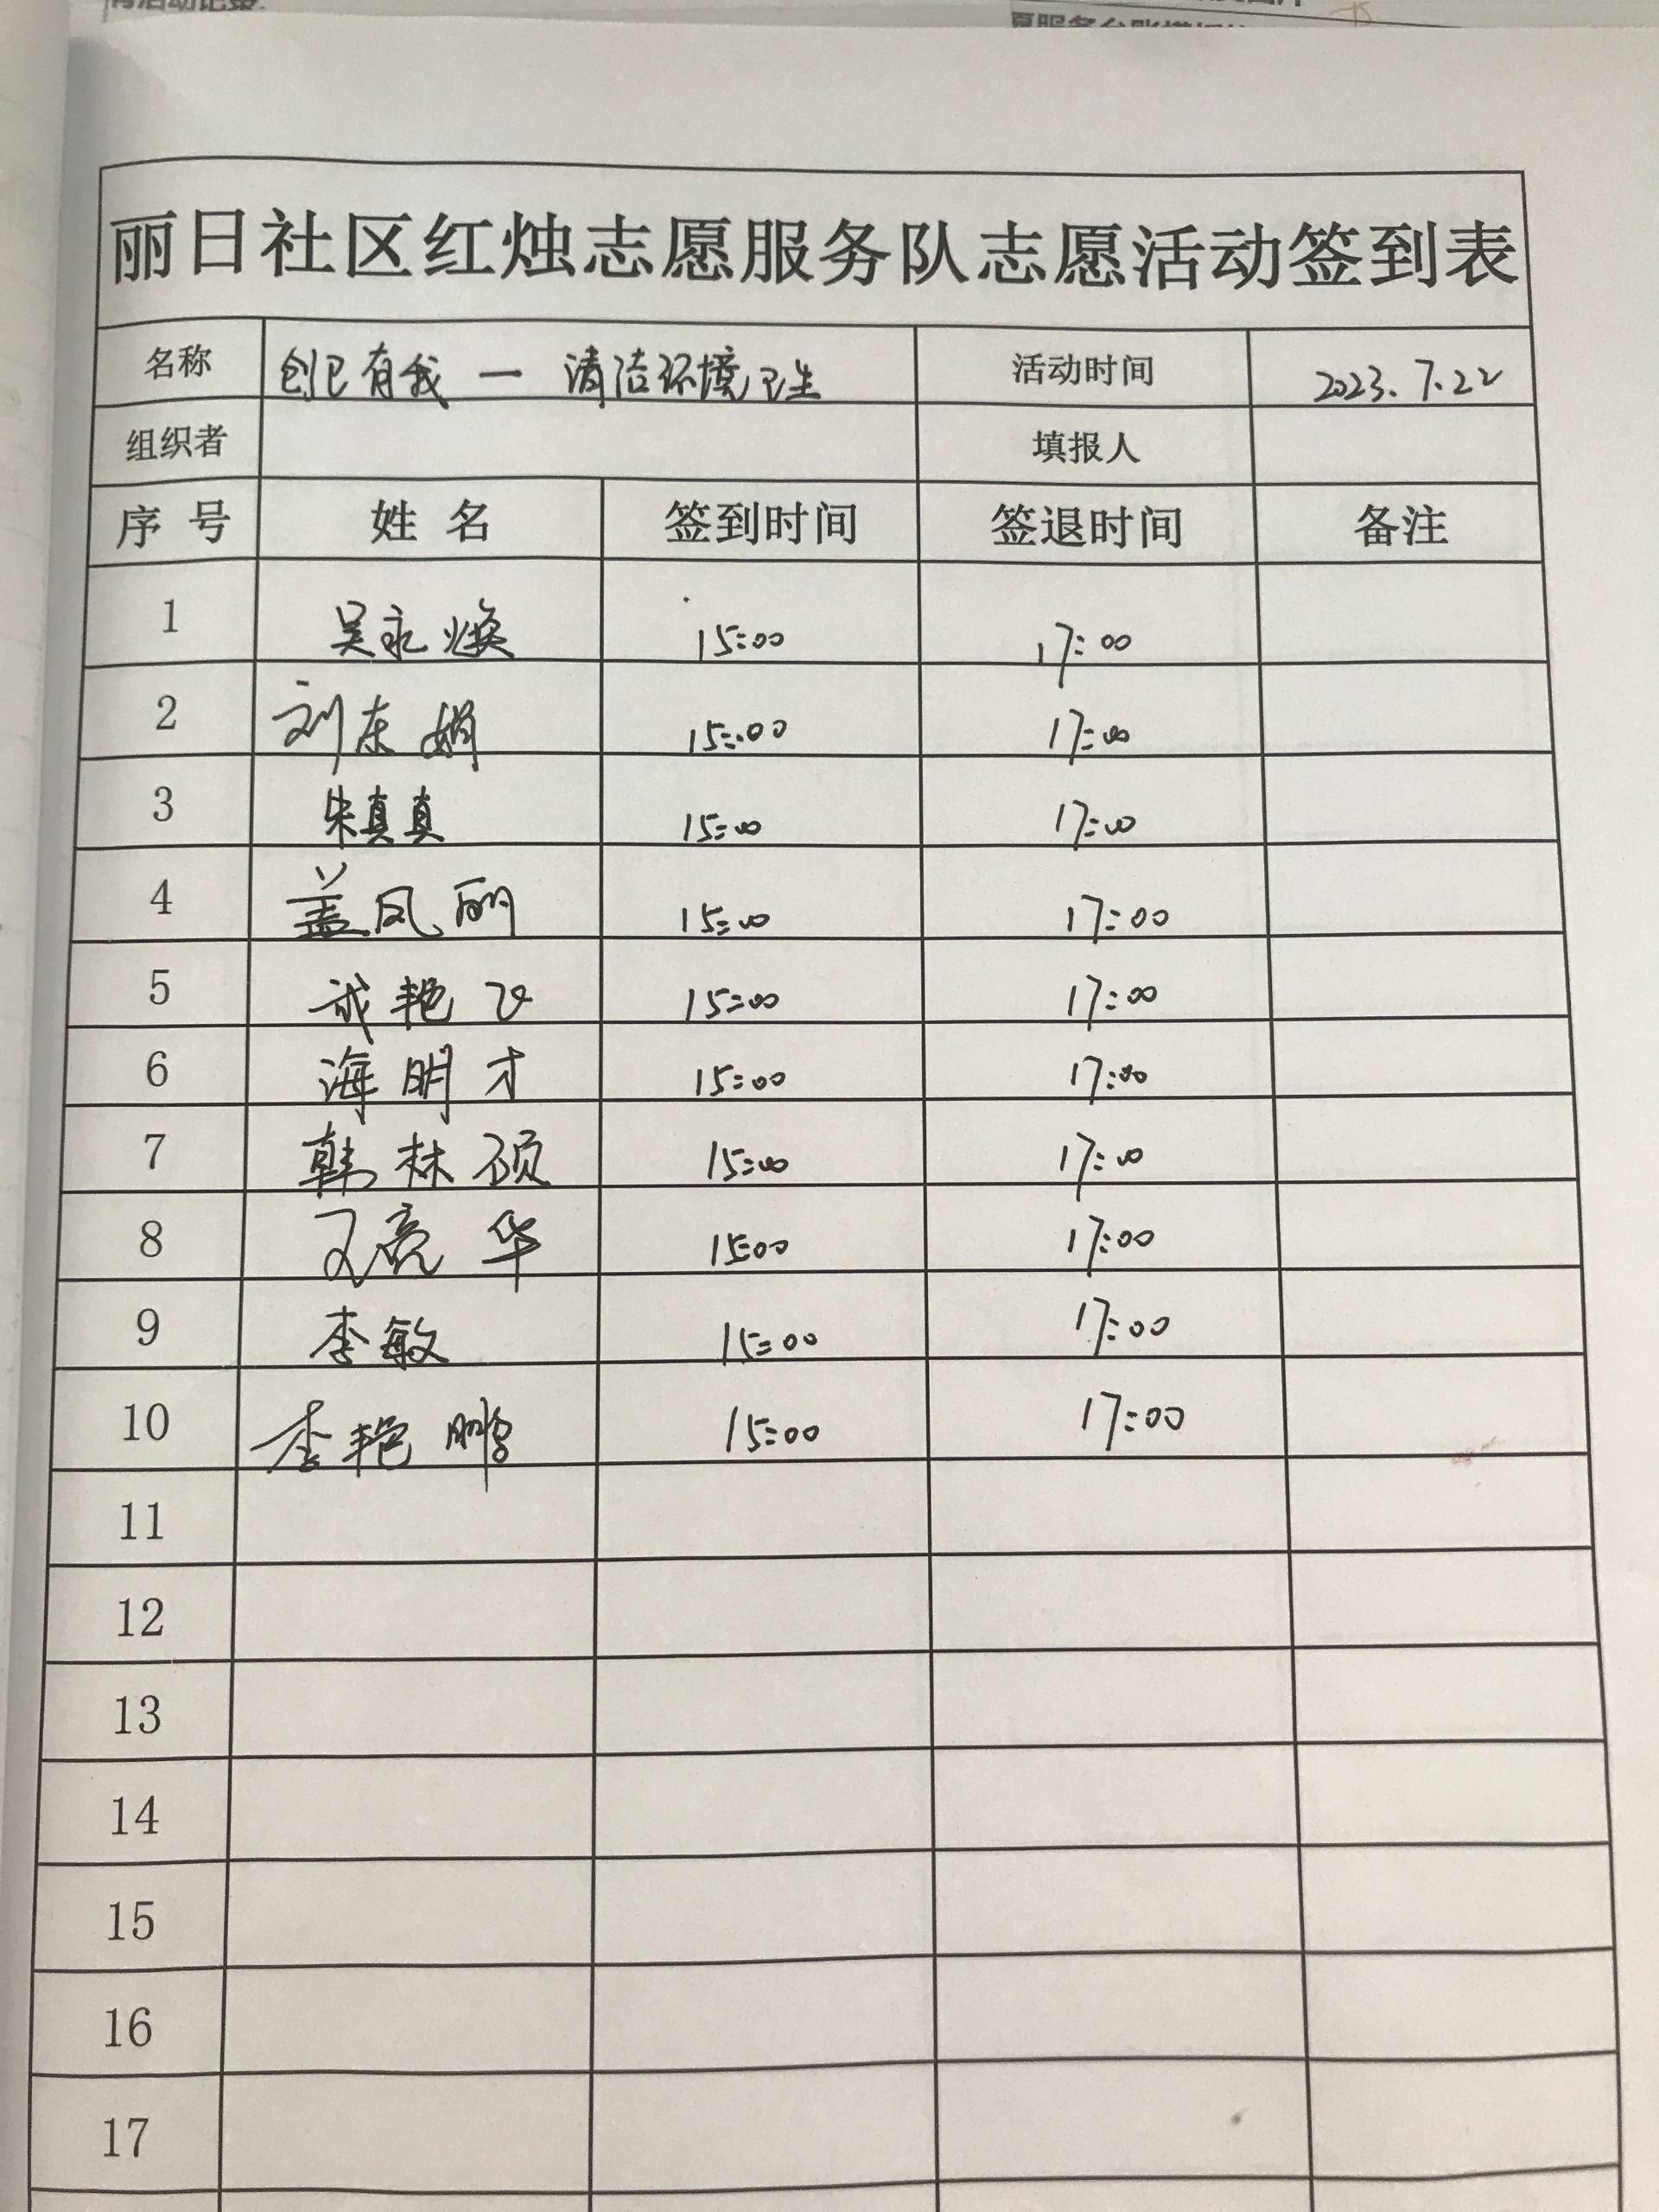 丽日社区红烛志愿服务队志愿活动签到表
名称 创巴有我 一 清洁环境卫生 活动时间 2023.7.22
组织者 填报人
序号 姓名 签到时间 签退时间 备注
1 吴永焕 15:00 17:00
2 刘东娟 15:00 17:00
3 朱真真 15:00 17:00
4 盖凤丽 15:00 17:00
5 艳飞 15:00 17:00
6 海明才 15:00 17:00
7 韩林硕 15:00 17:00
8 华 15:00 17:00
9 李敏 15:00 17:00
10 李艳鹏 15:00 17:00
11
12
13
14
15
16
17